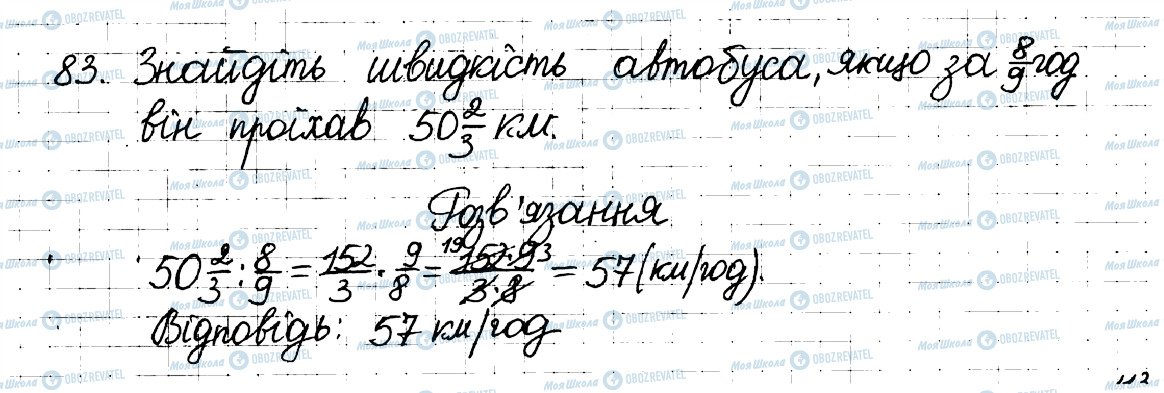 83. Знайдіть швидкість автобуса, якщо за 8/9 год
він проїхав 50 2/3 км.
Розв'язання
50 2/3 : 8/9 = 152/3 · 9/8 = 19 152·9 3 / 3·8 = 57 (км/год).
Відповідь: 57 км/год